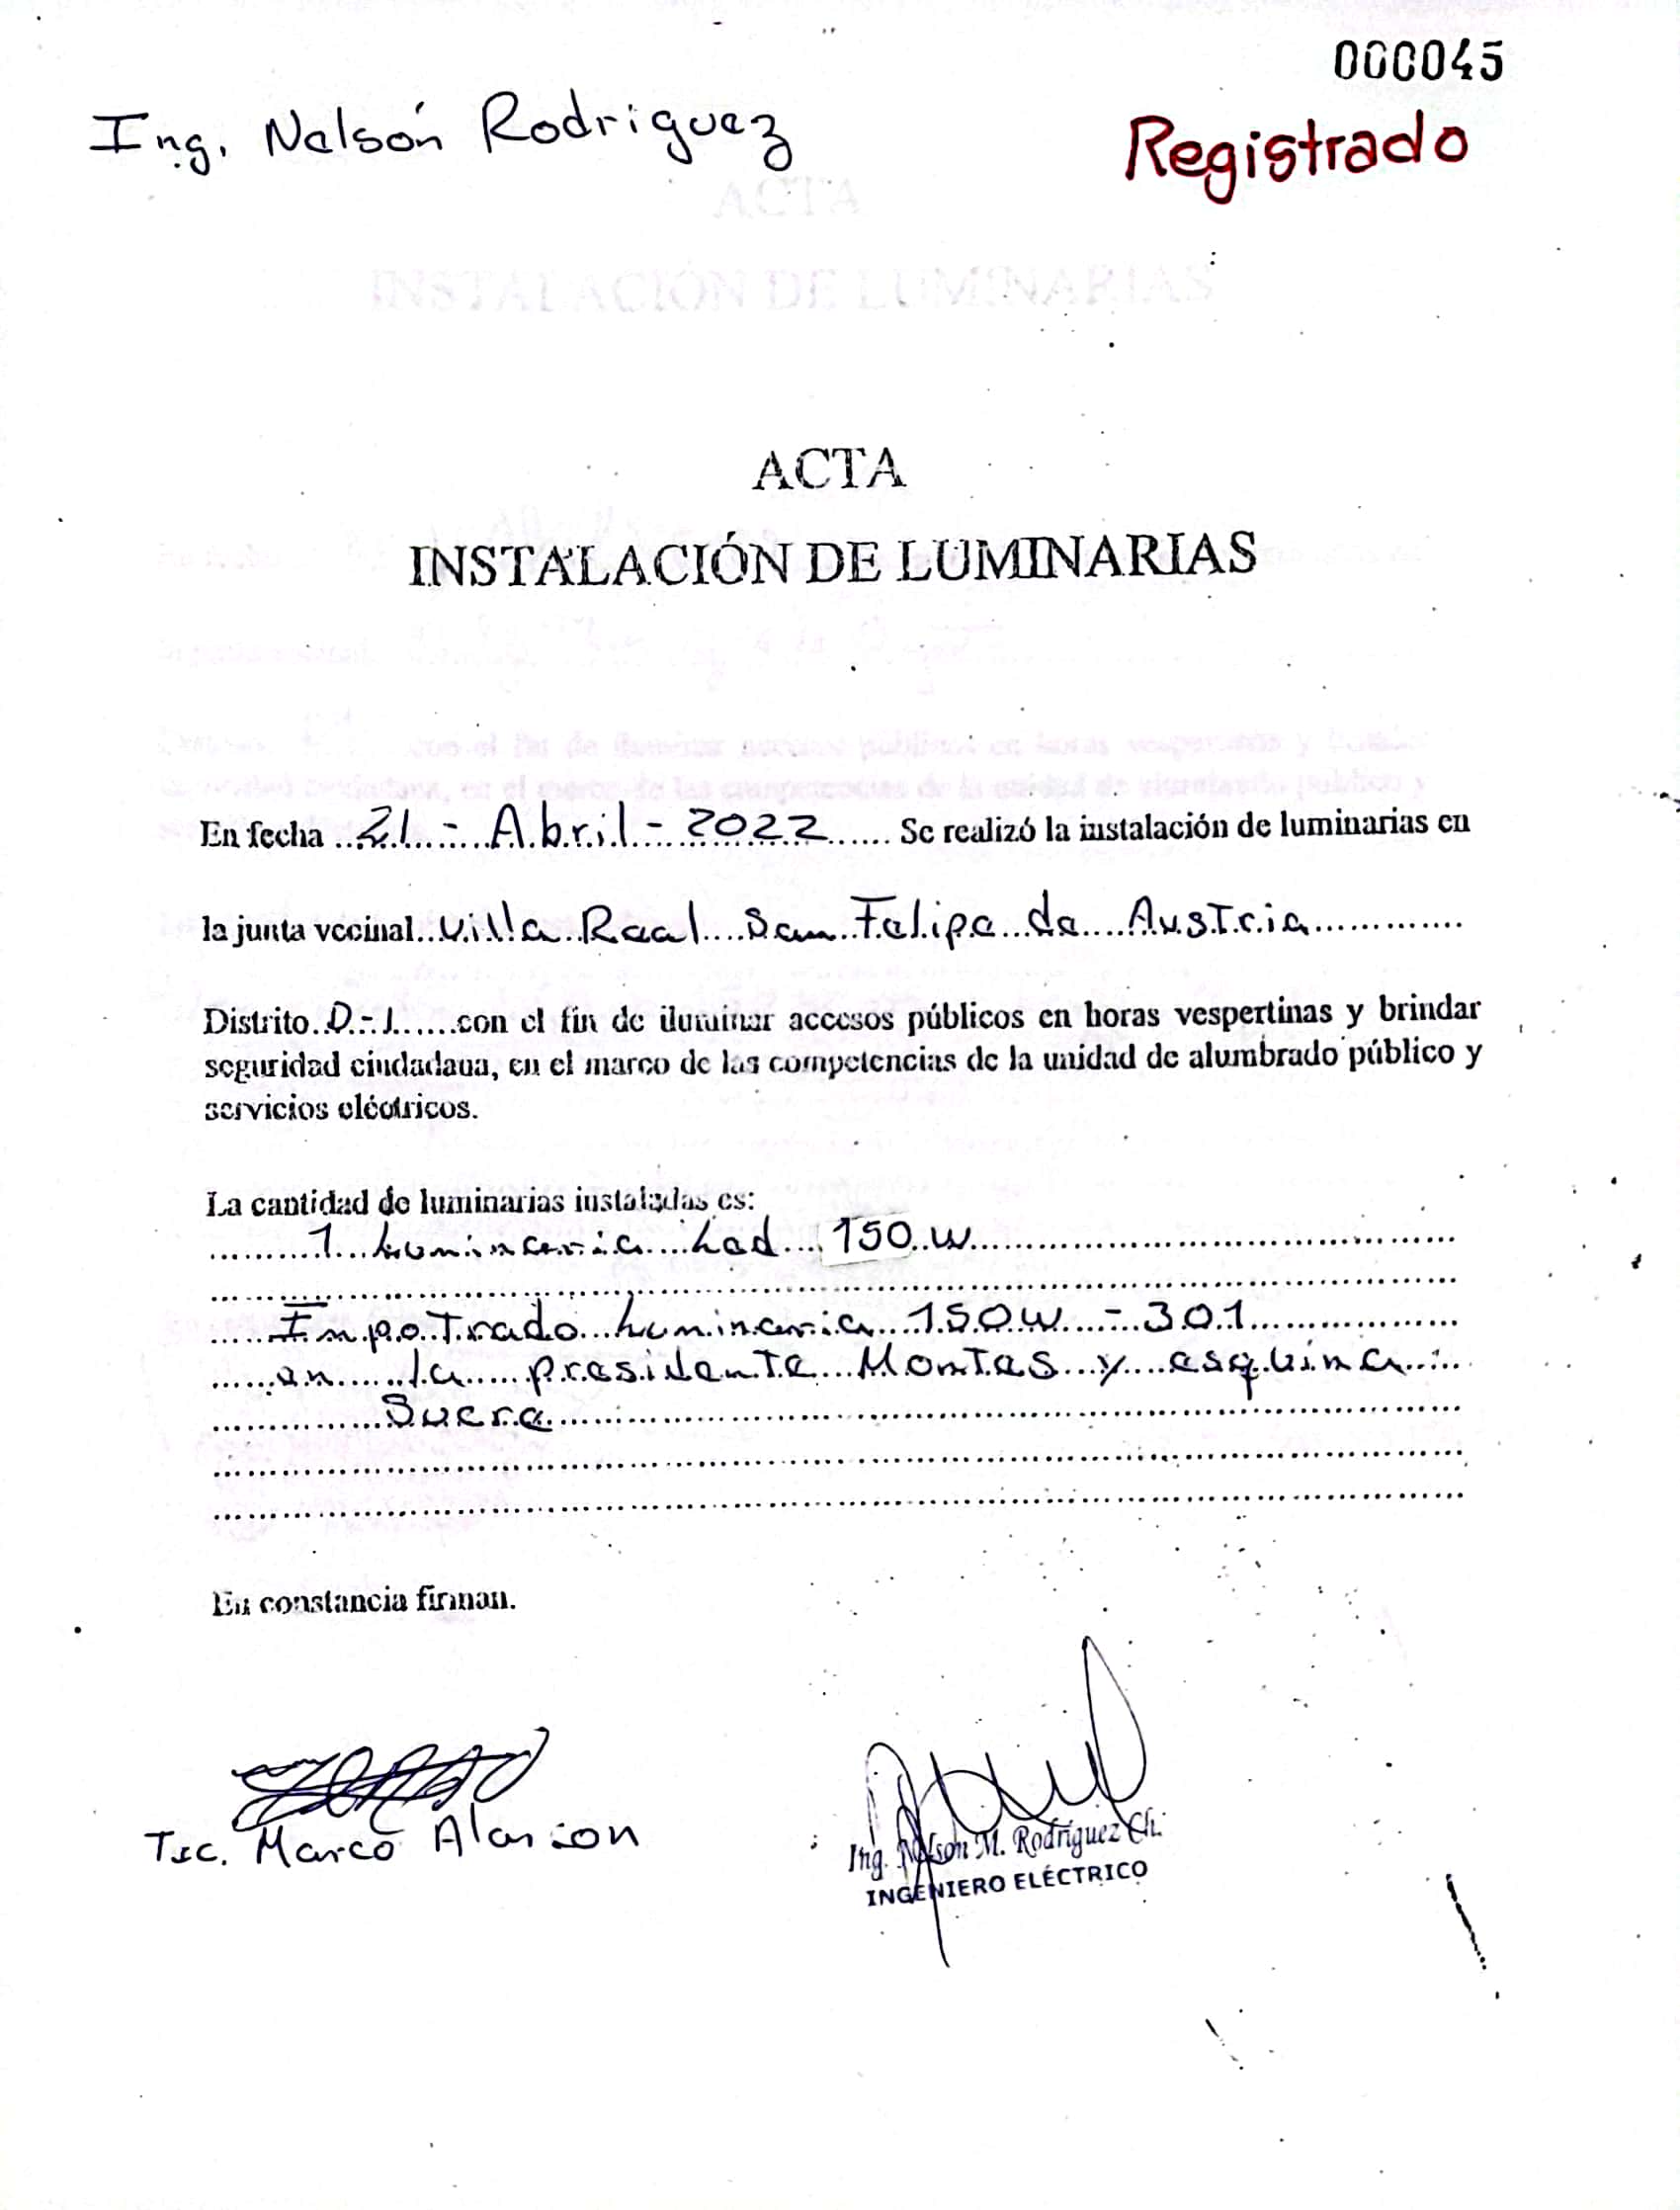 000045
Ing. Nelson Rodriguez
Registrado
ACTA
INSTALACIÓN DE LUMINARIAS
En fecha 21 - Abril - 2022 Se realizó la instalación de luminarias en
la junta vecinal Villa Real San Felipe de Austria
Distrito D-1 con el fin de iluminar accesos públicos en horas vespertinas y brindar
seguridad ciudadana, en el marco de las competencias de la unidad de alumbrado público y
servicios eléctricos.
La cantidad de luminarias instaladas es:
1 Luminaria Led 150 w
Impotrado Luminaria 150w - 301
en la presidente Montes y esquina
Sucre
En constancia firman.
Tec. Marco Alarcon
Ing. Nelson M. Rodríguez Ch.
INGENIERO ELÉCTRICO